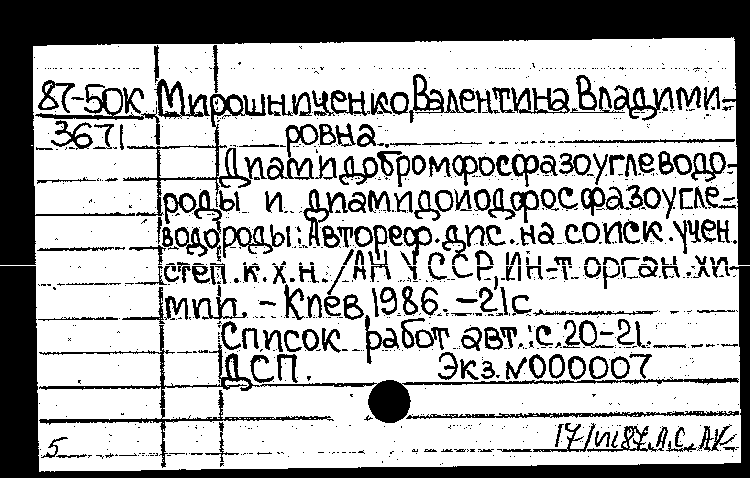 87-50К Мирошниченко, Валентина Владими-
3671 ровна
Диамидобромфосфазоуглеводо-
роды и диамидоиодфосфазоугле-
водороды: Автореф. дис. на соиск. учен.
степ. к.х.н. / АН УССР, Ин-т орган. хи-
мии. - Киев, 1986. - 21 с.
Список работ авт.: с. 20-21.
ДСП. Экз. N000007
5